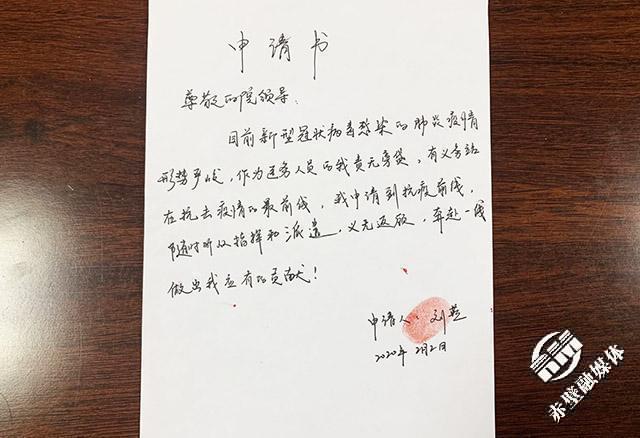 申请书
尊敬的院领导:
目前新型冠状病毒感染的肺炎疫情
形势严峻,作为医务人员的我责无旁贷,有义务站
在抗击疫情的最前线,我申请到抗疫前线,
随时听从指挥和派遣,义无返顾,奔赴一线
做出我应有的贡献!
申请人:刘燕
2020年2月2日
赤壁融媒体